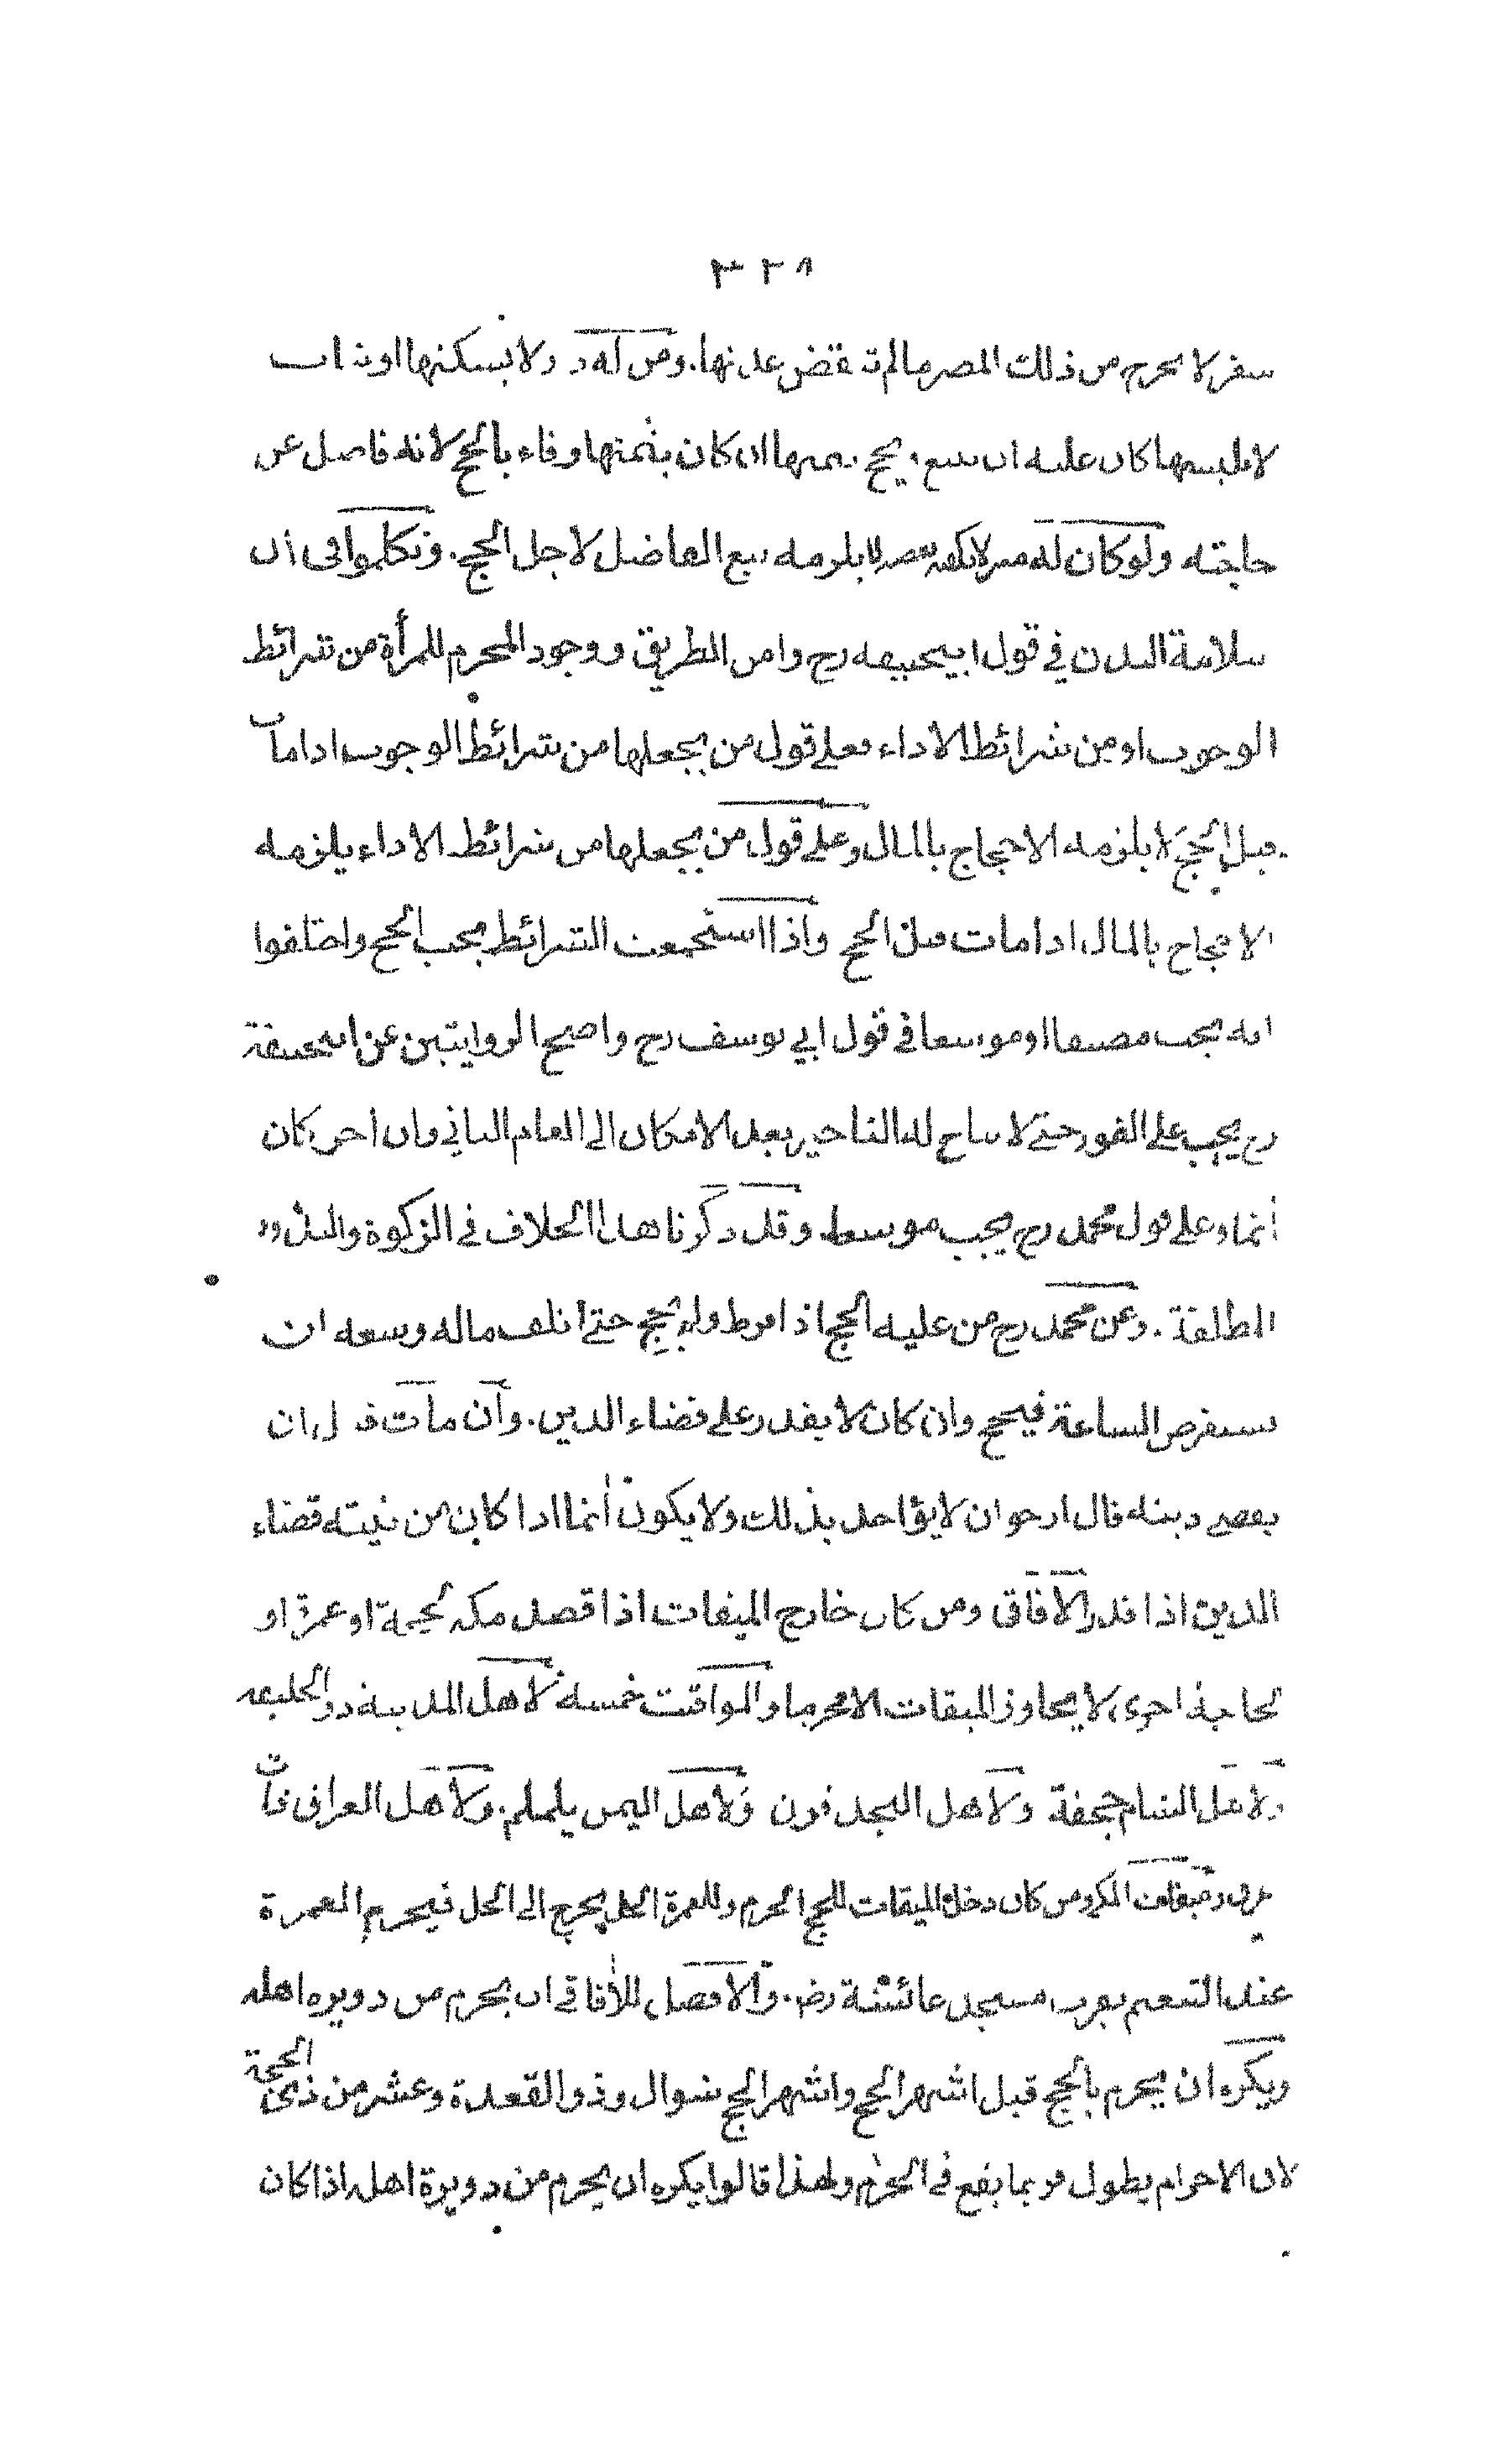 ٣٢٨
سفر لا تخرج من ذلك المصر ما لم تنقض عدتها. ومن له دور لا يسكنها او ثياب
لا يلبسها كان عليه ان يبيع ويحج بثمنها ان كان بثمنها وفاء بالحج لانه فاضل عن
حاجته ولو كان له منزل يكفيه بعضه لا يلزمه بيع الفاضل لاجل الحج. وتكلموا في ان
سلامة البدن في قول ابي حنيفه رح وامن الطريق ووجود المحرم للمرأة من شرائط
الوجوب او من شرائط الاداء فعلى قول من يجعلها من شرائط الوجوب اذا مات
قبل الحج لا يلزمه الاحجاج بالمال وعلى قول من يجعلها من شرائط الاداء يلزمه
الاحجاج بالمال اذا مات قبل الحج واذا استجمعت الشرائط يجب الحج واختلفوا
انه يجب مضيقا او موسعا في قول ابي يوسف رح واصح الروايتين عن ابيحنيفة
رح يجب على الفور حتى لا يباح له التاخير بعد الامكان الى العام الثاني وان اخر كان
أثما وعلى قول محمد رح يجب موسعا وقد ذكرنا هذا الخلاف في الزكوة والنذور
المطلقة. وعن محمد رح من عليه الحج اذا فرط ولم يحج حتى اتلف ماله وسعه ان
يستقرض الساعة فيحج وان كان لا يقدر على قضاء الدين. وان مات قبل ان
يقضي دينه قال ارجو ان لا يؤاخذ بذلك ولا يكون أثما اذا كان من نيته قضاء
الدين اذا قدر الآفاقي ومن كان خارج الميقات اذا قصد مكه لحجة او عمرة او
لحاجة اخرى لا يجاوز الميقات الا محرما والمواقيت خمسة لاهل المدينة ذو الحليفه
ولاهل الشام جحفة ولاهل النجد قرن ولاهل اليمن يلملم. ولاهل العراق ذات
عرق وميقات المكي ومن كان دخل الميقات للحج الحرم وللعمرة الحل يخرج الى الحل فيحرم العمرة
عند التنعيم بقرب مسجد عائشة رض. والافضل للأفاقي ان يحرم من دويره اهله
ويكره ان يحرم بالحج قبل اشهر الحج واشهر الحج شوال وذو القعدة وعشر من ذي الحجة
لان الاحرام يطول فربما يقع في المحرم ولهذا قالوا يكره ان يحرم من دويرة اهله اذا كان